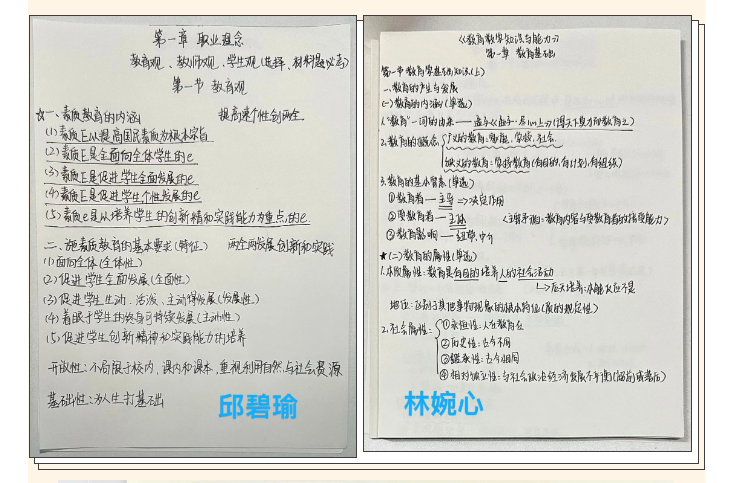 第一章 职业理念
教育观、教师观、学生观(选择、材料题必考)
第一节 教育观
☆一、素质教育的内涵 提高速个性创两全
(1)素质E以提高国民素质为根本宗旨
(2)素质E是全面向全体学生的e
(3)素质E是促进学生全面发展的e
(4)素质E是促进学生个性发展的e
(5)素质e是以培养学生的创新精和实践能力为重点的e
二、施素质教育的基本要求(特征) 两全两发展创新和实践
(1)面向全体(全体性)
(2)促进学生全面发展(全面性)
(3)促进学生生动、活泼、主动得发展(发展性)
(4)着眼于学生的终身可持续发展(主动性)
(5)促进学生创新精神和实践能力的培养
开放性:不局限于校内、课内和课本,重视利用自然与社会资源
基础性:为人生打基础
邱碧瑜
《教育教学知识与能力》
第一章 教育基础
第一节教育学基础知识(上)
一、教育的产生与发展
(一)教育的内涵(单选)
1."教育"一词的由来——孟子《孟子·尽心上》(得天下英才而教育之)
2.教育的概念
广义的教育:家庭、学校、社会
狭义的教育:学校教育(有目的,有计划,有组织)
3.教育的基本要素(单选)
①教育者——主导=>决定作用
②受教育者——主体 <主要矛盾:教育内容与受教育者的接受能力>
③教育影响——纽带,中介
★(二)教育的属性(单选)
1.本质属性:教育是有目的培养人的社会活动
↳后天培养:本能反应不是
地位:区别与其他事物现象的根本特征(质的规定性)
2.社会属性:
①永恒性:人在教育在
②历史性:古今不同
③继承性:古今相同
④相对独立性:与社会政治经济发展不平衡(超前或落后)
林婉心